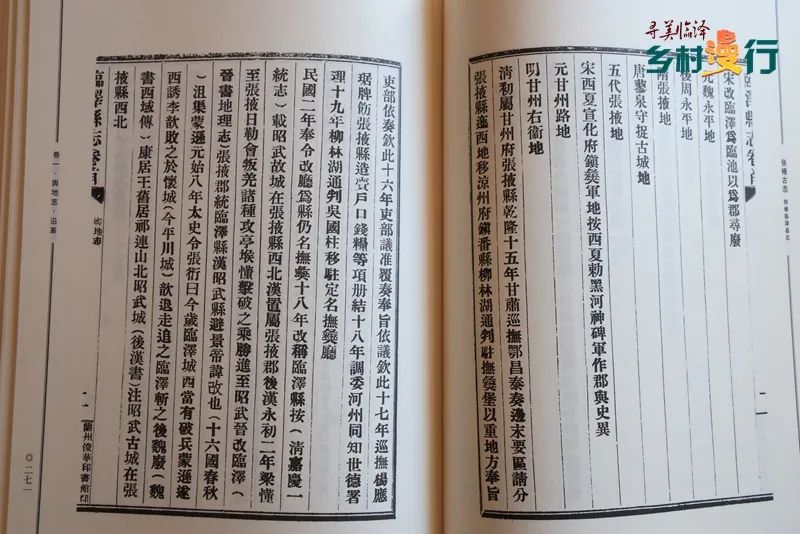 寻美临泽
乡村漫行
臨澤縣志卷首
張掖古志
宋改臨澤爲臨池以爲郡尋廢
元魏永平地
後周永平地
隋張掖地
唐蓼泉守捉古城地
五代張掖地
宋西夏宣化府鎭夔軍地按西夏勅黑河神碑軍作郡與史異
元甘州路地
明甘州右衞地
清初屬甘州府張掖縣乾隆十五年甘肅巡撫鄂昌泰奏邊末要區請分
張掖縣迤西地移涼州府鎭番縣柳林湖通判駐撫彜堡以重地方奉旨
吏部依奏欽此十六年吏部議准覆奏奉旨依議欽此十七年巡撫楊應
琚牌飭張掖縣造賫戶口錢糧等項册結十八年調委河州同知世德署
理十九年柳林湖通判吳國柱移駐定名撫彜廳
民國二年奉令改廳爲縣仍名撫彜十八年改稱臨澤縣按（清嘉慶一
統志）載昭武故城在張掖縣西北漢置屬張掖郡後漢永初二年梁慬
至張掖日勒會叛羌諸種攻亭堠慬擊破之乘勝進至昭武晉改臨澤（
晉書地理志）張掖郡統臨澤縣漢昭武縣避景帝諱改也（十六國春秋
）沮渠蒙遜元始八年太史令張衍曰今歲臨澤城西當有破兵蒙遜遂
西誘李歆敗之於懷城（今平川城）歆退走追之臨澤斬之後魏廢（魏
書西域傳）康居王舊居祁連山北昭武城（後漢書）注昭武古城在張
掖縣西北
臨澤縣志卷首
輿地志
二
蘭州俊華印書館印
卷一·輿地志·沿革
〇二七一